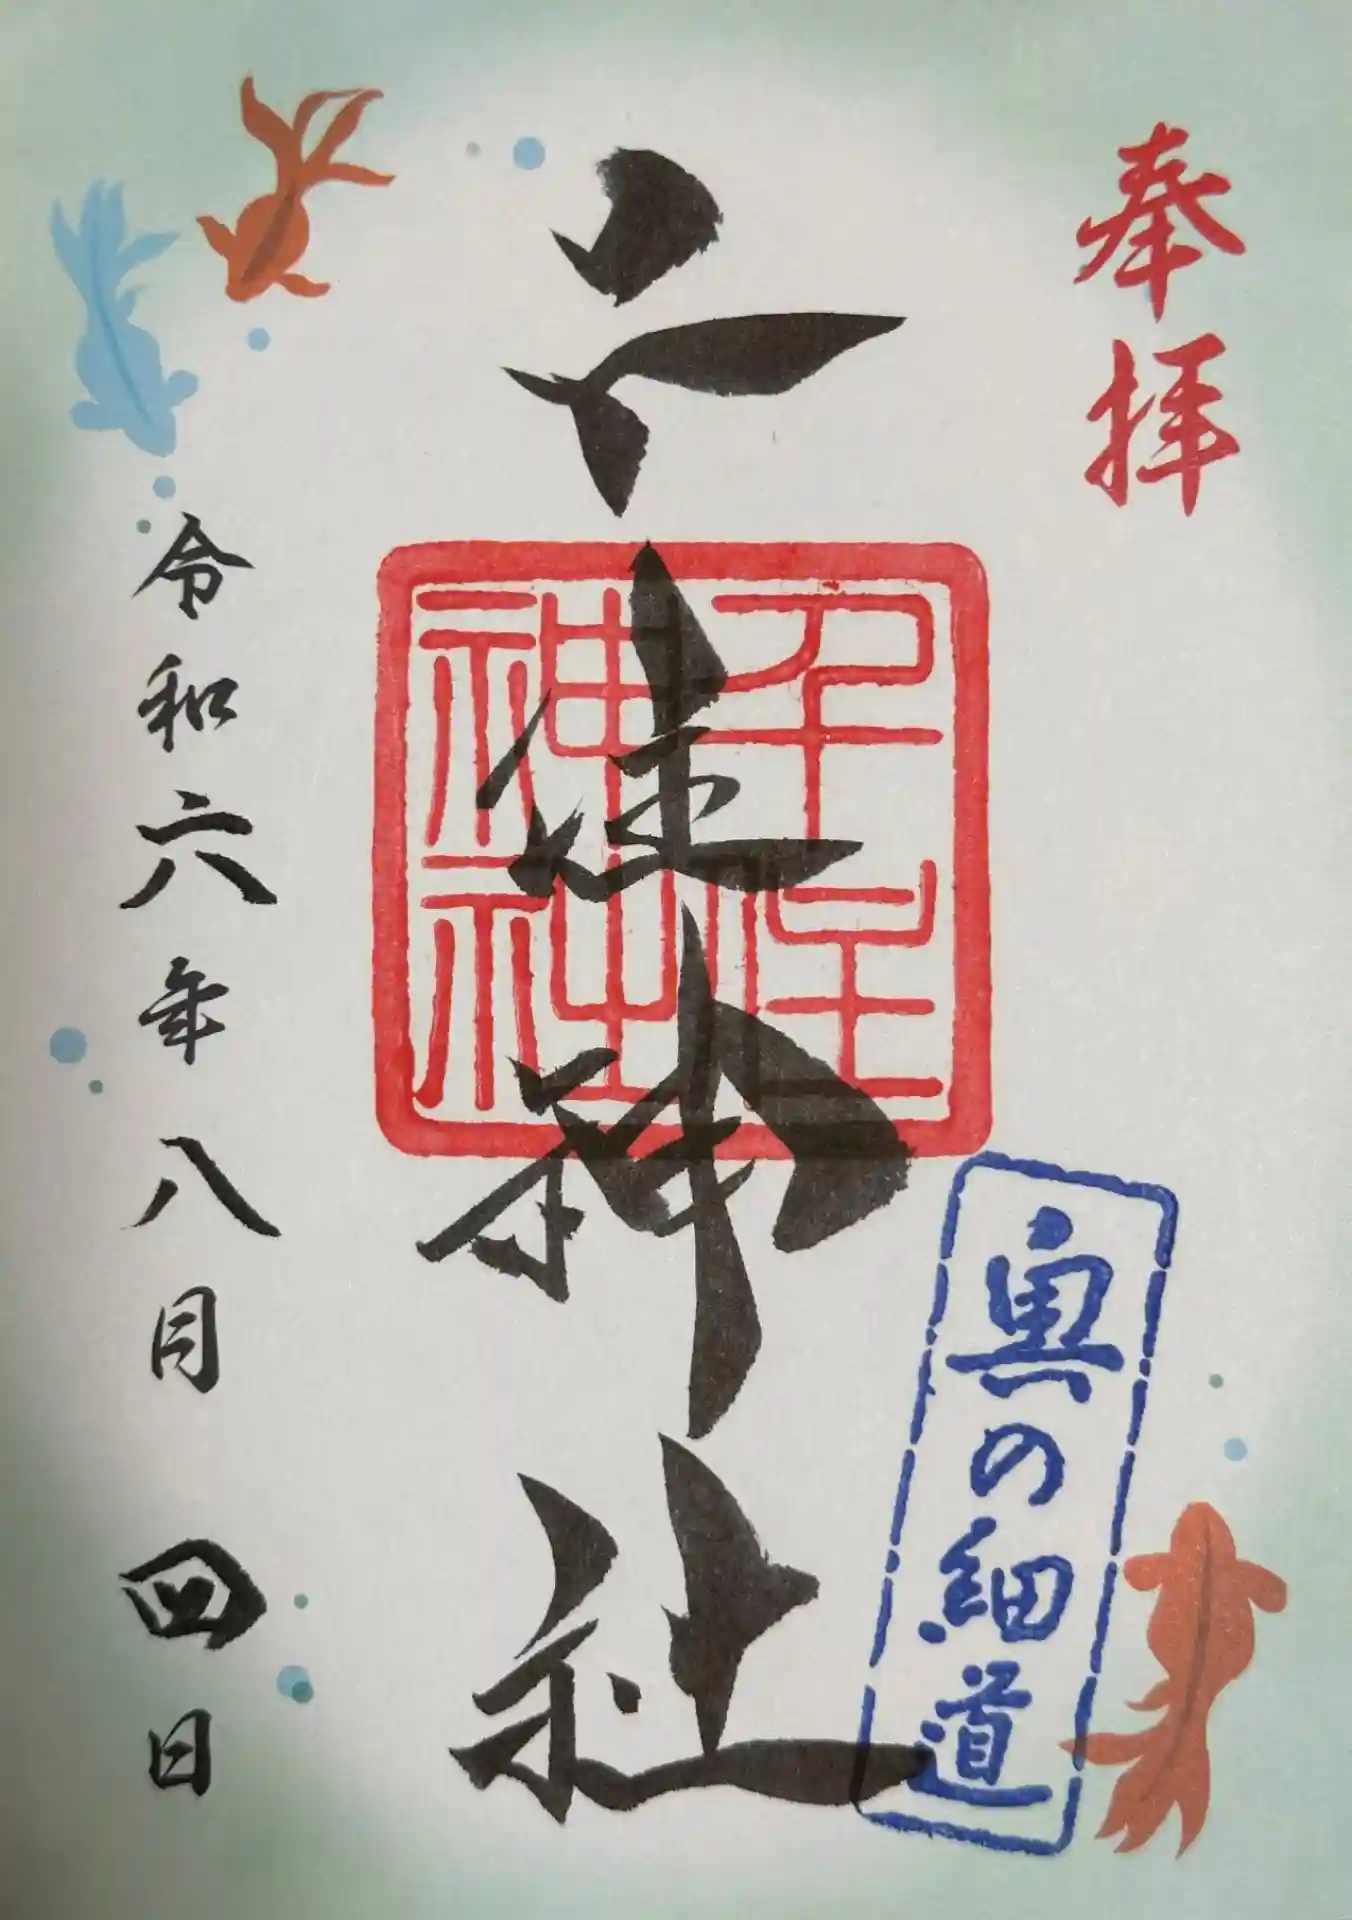 奉拝
千住神社
千住
神社
奥の細道
令和六年八月四日